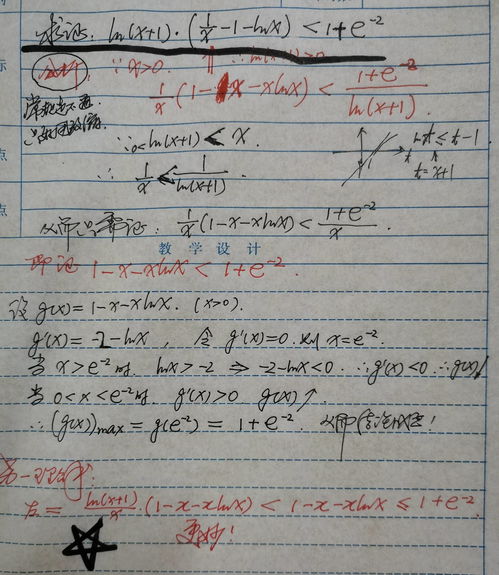 求证: ln(x+1)·(1/x-1-lnx)<1+e^-2
分析: ∵x>0. ∵ln(x+1)>0
1/x(1-x-xlnx)<(1+e^-2)/ln(x+1).
∵0<ln(x+1)<x
lnt≤t-1
t=x+1
∴1/x<1/ln(x+1).
从而只需证: 1/x(1-x-xlnx)<(1+e^-2)/x.
教学设计
即证 1-x-xlnx<1+e^-2.
设g(x)=1-x-xlnx. (x>0).
g'(x)=-2-lnx, 令g'(x)=0. 则x=e^-2.
当x>e^-2时, lnx>-2⇒-2-lnx<0. ∴g'(x)<0 ∴g(x)↓
当0<x<e^-2时, g'(x)>0 g(x)↑
∴(g(x))max=g(e^-2)=1+e^-2. 从而结论成立!
另一种
左=ln(x+1)/x·(1-x-xlnx)<1-x-xlnx≤1+e^-2
更好!